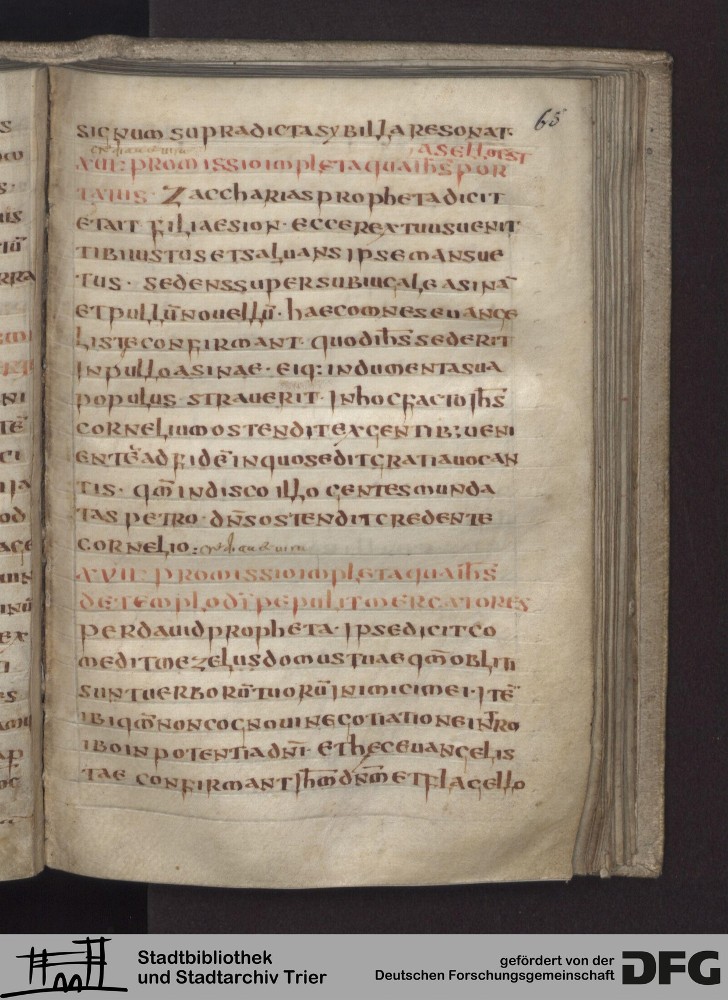 65
SIGNUM SUPRADICTA SYBILLA RESONAT·
ASELLO EST
XVII: PROMISSIO IMPLETA QUA IHS̅ POR
TATUS· ZACCHARIAS PROPHETA DICIT
ETAIT FILIAE SION· ECCE REX TUUS UENIT
TIBI IUSTUS ET SALUANS IPSE MANSUE
TUS· SEDENS SUPER SUBIUGALE ASINA̅
ET PULLU̅ NOUELLU̅· HAEC OMNES EUANGE
LISTE CONFIRMANT· QUOD IHS̅ SEDERIT
IN PULLO ASINAE· EIQ: INDUMENTA SUA
POPULUS STRAUERIT· IN HOC FACTO IHS̅
CORNELIUM OSTENDIT EX GENTIB; UENI
ENTE̅ AD FIDE̅ IN QUO SEDIT GRATIA UOCAN
TIS· QM̅ IN DISCO ILLO GENTES MUNDA
TAS PETRO· DN̅S OSTENDIT CREDENTE
CORNELIO:
XVII· PROMISSIO IMPLETA QUA IHS̅
DE TEMPLO DI̅ PEPULIT MERCATORES
PER DAUID PROPHETA· IPSE DICIT CO
MEDIT ME ZELUS DOMUS TUAE QM̅ OBLITI
SUNT UERBORU̅ TUORU̅ INIMICI MEI· ITE̅
IBI QM̅ NON COGNOUI NEGOTIATIONE INTRO
IBO IN POTENTIA DN̅I· ET HEC EUANGELIS
TAE CONFIRMANT IHM̅ DN̅M ET FLAGELLO
Stadtbibliothek
und Stadtarchiv Trier
gefördert von der
Deutschen Forschungsgemeinschaft
DFG